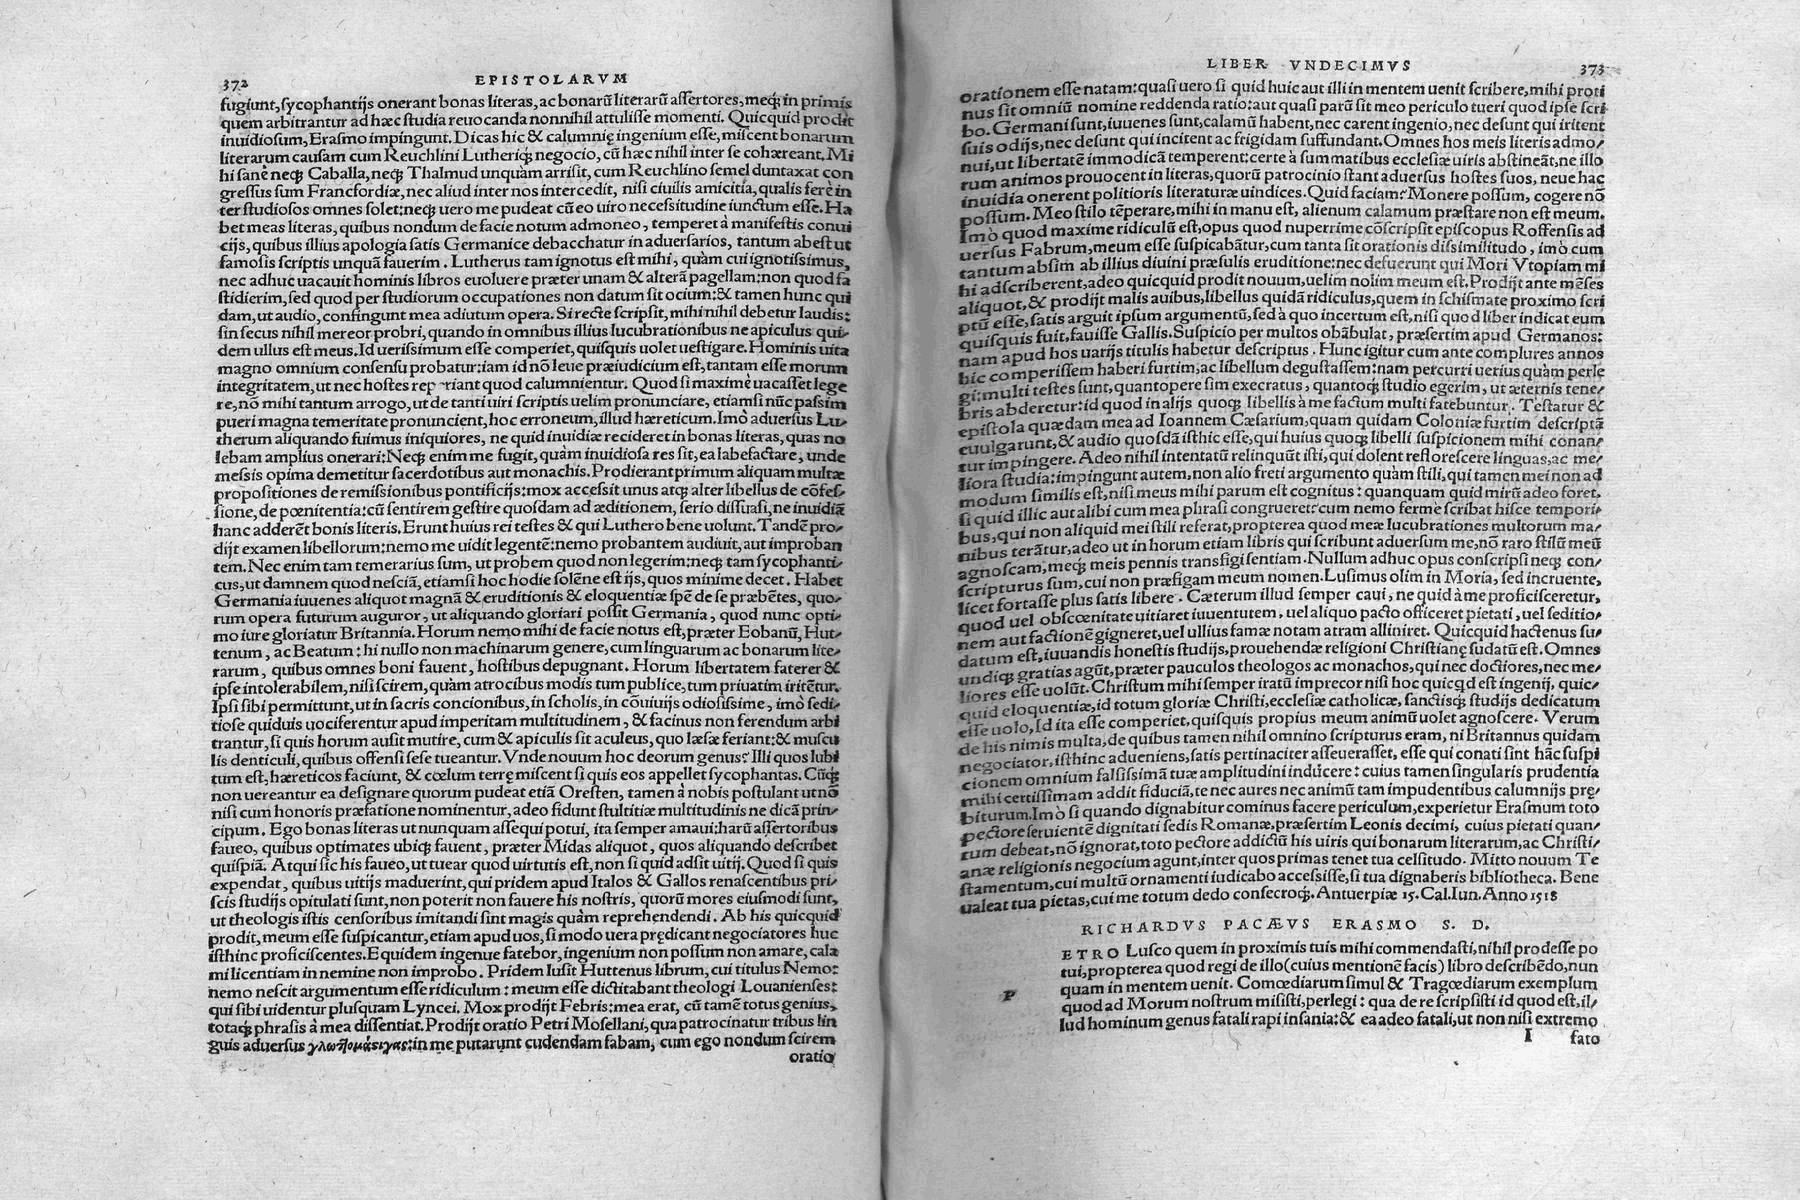 372
EPISTOLARVM
fugiunt, sycophantijs onerant bonas literas, ac bonarū literarū assertores, meq́ꝫ in primis
quem arbitrantur ad hæc studia reuocanda nonnihil attulisse momenti. Quicquid prodit
inuidiosum, Erasmo impingunt. Dicas hic & calumnię ingenium esse, miscent bonarum
literarum causam cum Reuchlini Lutheriq́ꝫ negocio, cū hæc nihil inter se cohæreant. Mi
hi sanè neq́ꝫ Caballa, neq́ꝫ Thalmud unquàm arrisit, cum Reuchlino semel duntaxat con
gressus sum Francfordiæ, nec aliud inter nos intercedit, nisi ciuilis amicitia, qualis ferè in
ter studiosos omnes solet: neq́ꝫ uero me pudeat cū eo uiro necessitudine iunctum esse. Ha
bet meas literas, quibus nondum de facie notum admoneo, temperet à manifestis conui
cijs, quibus illius apologia satis Germanice debacchatur in aduersarios, tantum abest ut
famosis scriptis unquā fauerim. Lutherus tam ignotus est mihi, quàm cui ignotissimus,
nec adhuc uacauit hominis libros euoluere præter unam & alterā pagellam: non quod fa
stidierim, sed quod per studiorum occupationes non datum sit ocium: & tamen hunc qui
dam, ut audio, confingunt mea adiutum opera. Si recte scripsit, mihi nihil debetur laudis:
sin secus nihil mereor probri, quando in omnibus illius lucubrationibus ne apiculus qui-
dem ullus est meus. Id uerissimum esse comperiet, quisquis uolet uestigare. Hominis uita
magno omnium consensu probatur: iam id nō leue præiudicium est, tantam esse morum
integritatem, ut nec hostes reperiant quod calumnientur. Quod si maximè uacasset lege
re, nō mihi tantum arrogo, ut de tanti uiri scriptis uelim pronunciare, etiamsi nūc passim
pueri magna temeritate pronuncient, hoc erroneum, illud hæreticum. Imò aduersus Lu-
therum aliquando fuimus iniquiores, ne quid inuidiæ recideret in bonas literas, quas no
lebam amplius onerari: Neq́ꝫ enim me fugit, quàm inuidiosa res sit, ea labefactare, unde
messis opima demetitur sacerdotibus aut monachis. Prodierant primum aliquam multæ
propositiones de remissionibus pontificijs: mox accessit unus atq́ꝫ alter libellus de cōfes-
sione, de pœnitentia: cū sentirem gestire quosdam ad æditionem, serio dissuasi, ne inuidiā
hanc adderēt bonis literis. Erunt huius rei testes & qui Luthero bene uolunt. Tandē pro-
dijt examen libellorum: nemo me uidit legentē: nemo probantem audiuit, aut improban
tem. Nec enim tam temerarius sum, ut probem quod non legerim: neq́ꝫ tam sycophanti-
cus, ut damnem quod nesciā, etiamsi hoc hodie solēne est ijs, quos minime decet. Habet
Germania iuuenes aliquot magnā & eruditionis & eloquentiæ spē de se præbētes, quo-
rum opera futurum auguror, ut aliquando gloriari possit Germania, quod nunc opti-
mo iure gloriatur Britannia. Horum nemo mihi de facie notus est, præter Eobanū, Hut-
tenum, ac Beatum: hi nullo non machinarum genere, cum linguarum ac bonarum lite-
rarum, quibus omnes boni fauent, hostibus depugnant. Horum libertatem faterer &
ipse intolerabilem, nisi scirem, quàm atrocibus modis tum publice, tum priuatim iritētur.
Ipsi sibi permittunt, ut in sacris concionibus, in scholis, in cōuiuijs odiosissime, imò sedi-
tiose quiduis uociferentur apud imperitam multitudinem, & facinus non ferendum arbi
trantur, si quis horum ausit mutire, cum & apiculis sit aculeus, quo læsæ feriant: & muscu
lis denticuli, quibus offensi sese tueantur. Vnde nouum hoc deorum genus? Illi quos lubi
tum est, hæreticos faciunt, & cœlum terrę miscent si quis eos appellet sycophantas. Cūq́ꝫ
non uereantur ea designare quorum pudeat etiā Oresten, tamen à nobis postulant ut nō
nisi cum honoris præfatione nominentur, adeo fidunt stultitiæ multitudinis ne dicā prin-
cipum. Ego bonas literas ut nunquam assequi potui, ita semper amaui: harū assertoribus
faueo, quibus optimates ubiq́ꝫ fauent, præter Midas aliquot, quos aliquando describet
quispiā. Atqui sic his faueo, ut tuear quod uirtutis est, non si quid adsit uitij. Quod si quis
expendat, quibus uitijs maduerint, qui pridem apud Italos & Gallos renascentibus pri-
scis studijs opitulati sunt, non poterit non fauere his nostris, quorū mores eiusmodi sunt,
ut theologis istis censoribus imitandi sint magis quàm reprehendendi. Ab his quicquid
prodit, meum esse suspicantur, etiam apud uos, si modo uera prędicant negociatores huc
isthinc proficiscentes. Equidem ingenue fatebor, ingenium non possum non amare, cala
mi licentiam in nemine non improbo. Pridem lusit Huttenus librum, cui titulus Nemo:
nemo nescit argumentum esse ridiculum: meum esse dictitabant theologi Louanienses:
qui sibi uidentur plusquam Lyncei. Mox prodijt Febris: mea erat, cū tamē totus genius,
totaq́ꝫ phrasis à mea dissentiat. Prodijt oratio Petri Mosellani, qua patrocinatur tribus lin
guis aduersus γλωττομάστιγας: in me putarunt cudendam fabam, cum ego nondum scirem
oratio
LIBER VNDECIMVS
373
orationem esse natam: quasi uero si quid huic aut illi in mentem uenit scribere, mihi proti
nus sit omniū nomine reddenda ratio: aut quasi parū sit meo periculo tueri quod ipse scri
bo. Germani sunt, iuuenes sunt, calamū habent, nec carent ingenio, nec desunt qui iritent
suis odijs, nec desunt qui incitent ac frigidam suffundant. Omnes hos meis literis admo-
nui, ut libertatē immodicā temperent: certe à summatibus ecclesiæ uiris abstineāt, ne illo
rum animos prouocent in literas, quorū patrocinio stant aduersus hostes suos, neue hac
inuidia onerent politioris literaturæ uindices. Quid faciam? Monere possum, cogere nō
possum. Meo stilo tēperare, mihi in manu est, alienum calamum præstare non est meum.
Imò quod maxime ridiculū est, opus quod nuperrime cōscripsit episcopus Roffensis ad
uersus Fabrum, meum esse suspicabātur, cum tanta sit orationis dissimilitudo, imò cum
tantum absim ab illius diuini præsulis eruditione: nec defuerunt qui Mori Vtopiam mi
hi adscriberent, adeo quicquid prodit nouum, uelim nolim meum est. Prodijt ante mēses
aliquot, & prodijt malis auibus, libellus quidā ridiculus, quem in schismate proximo scri
ptū esse, satis arguit ipsum argumentū, sed à quo incertum est, nisi quod liber indicat eum
quisquis fuit, fauisse Gallis. Suspicio per multos obābulat, præsertim apud Germanos:
nam apud hos uarijs titulis habetur descriptus. Hunc igitur cum ante complures annos
hic comperissem haberi furtim, ac libellum degustassem: nam percurri uerius quàm perle
gi: multi testes sunt, quantopere sim execratus, quantoq́ꝫ studio egerim, ut æternis tene-
bris abderetur: id quod in alijs quoq́ꝫ libellis à me factum multi fatebuntur. Testatur &
epistola quædam mea ad Ioannem Cæsarium, quam quidam Coloniæ furtim descriptā
euulgarunt, & audio quosdā isthic esse, qui huius quoq́ꝫ libelli suspicionem mihi conan-
tur impingere. Adeo nihil intentatū relinquūt isti, qui dolent reflorescere linguas, ac me-
liora studia: impingunt autem, non alio freti argumento quàm stili, qui tamen mei non ad
modum similis est, nisi meus mihi parum est cognitus: quanquam quid mirū adeo foret,
si quid illic aut alibi cum mea phrasi congrueret: cum nemo ferme scribat hisce tempori-
bus, qui non aliquid mei stili referat, propterea quod meæ lucubrationes multorum ma-
nibus terātur, adeo ut in horum etiam libris qui scribunt aduersum me, nō raro stilū meū
agnoscam, meq́ꝫ meis pennis transfigi sentiam. Nullum adhuc opus conscripsi neq́ꝫ con-
scripturus sum, cui non præfigam meum nomen. Lusimus olim in Moria, sed incruente,
licet fortasse plus satis libere. Cæterum illud semper caui, ne quid à me proficisceretur,
quod uel obscœnitate uitiaret iuuentutem, uel aliquo pacto officeret pietati, uel seditio-
nem aut factionē gigneret, uel ullius famæ notam atram alliniret. Quicquid hactenus su-
datum est, iuuandis honestis studijs, prouehendæ religioni Christianę sudatū est. Omnes
undiq́ꝫ gratias agūt, præter pauculos theologos ac monachos, qui nec doctiores, nec me-
liores esse uolūt. Christum mihi semper iratū imprecor nisi hoc quicqd est ingenij, quic-
quid eloquentiæ, id totum gloriæ Christi, ecclesiæ catholicæ, sanctisq́ꝫ studijs dedicatum
esse uolo, Id ita esse comperiet, quisquis propius meum animū uolet agnoscere. Verum
de his nimis multa, de quibus tamen nihil omnino scripturus eram, ni Britannus quidam
negociator, isthinc adueniens, satis pertinaciter asseuerasset, esse qui conati sint hāc suspi
cionem omnium falsissimā tuæ amplitudini inducere: cuius tamen singularis prudentia
mihi certissimam addit fiduciā, te nec aures nec animū tam impudentibus calumnijs prę-
biturum. Imò si quando dignabitur cominus facere periculum, experietur Erasmum toto
pectore seruientē dignitati sedis Romanæ, præsertim Leonis decimi, cuius pietati quan-
tum debeat, nō ignorat, toto pectore addictū his uiris qui bonarum literarum, ac Christi-
anæ religionis negocium agunt, inter quos primas tenet tua celsitudo. Mitto nouum Te
stamentum, cui multū ornamenti iudicabo accessisse, si tua dignaberis bibliotheca. Bene
ualeat tua pietas, cui me totum dedo consecroq́ꝫ. Antuerpiæ 15. Cal. Iun. Anno 1518
RICHARDVS PACÆVS ERASMO S. D.
P ETRO Lusco quem in proximis tuis mihi commendasti, nihil prodesse po
tui, propterea quod regi de illo (cuius mentionē facis) libro describēdo, nun
quam in mentem uenit. Comœdiarum simul & Tragœdiarum exemplum
quod ad Morum nostrum misisti, perlegi: qua de re scripsisti id quod est, il-
lud hominum genus fatali rapi insania: & ea adeo fatali, ut non nisi extremo
I fato